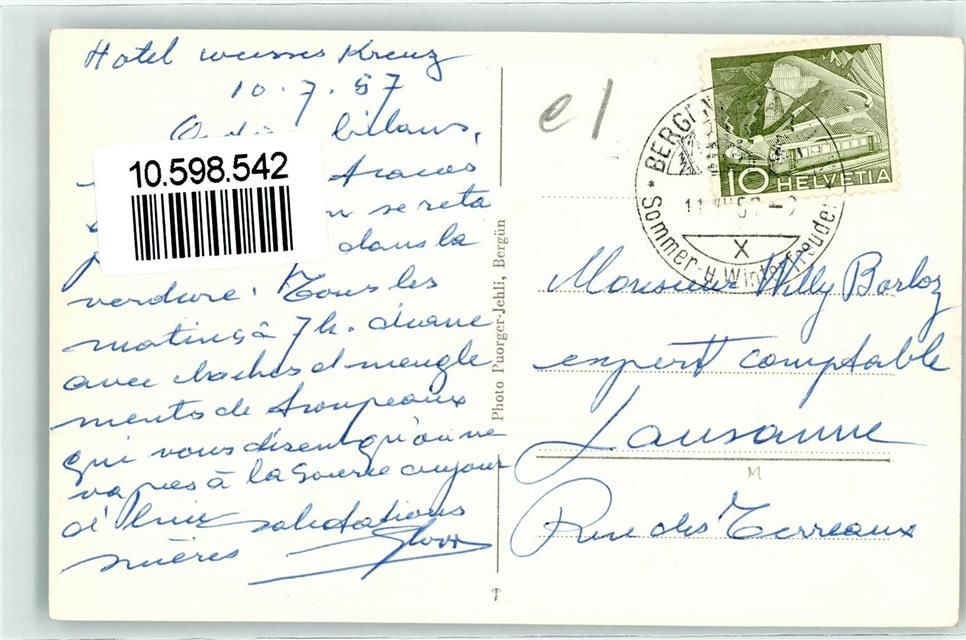 Hotel weisses Kreuz
10.7.57
bilans,
10.598.542
tracas
se reta
dans la
verdure. Tous les
matins à 7h. diane
avec cloches et meugle
ments de troupeaux
qui vous disent qu'on ne
va pas à la Source aujour
d'hui salutations
Photo Puorger-Jehli, Bergün
e1
BERGÜN
Sommer- u. Winterfreuden
X
10 HELVETIA
Monsieur Willy Barloz
expert comptable
Lausanne
M
Rue des Terreaux